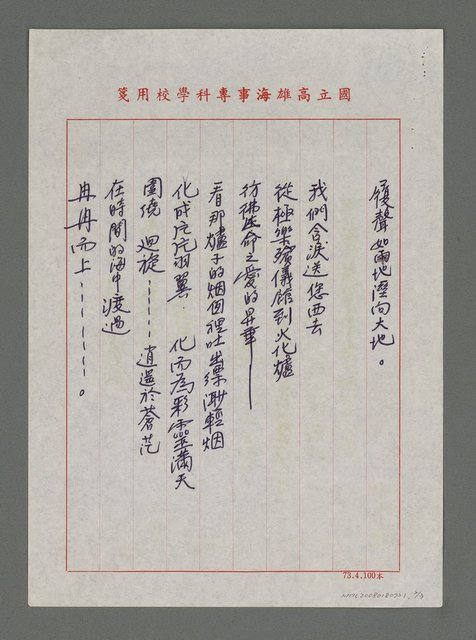 國立高雄海事專科學校用箋
履聲如雨地溼向大地。
我們含淚送您西去
從極樂殯儀館到火化爐
彷彿生命之愛的昇華——
看那爐子的烟囱裡吐出縹渺輕烟
化成片片羽翼．化而為彩靈滿天
圍繞 迴旋……逍遥於蒼茫
在時間的海中渡過
冉冉而上………。
73.4.100本